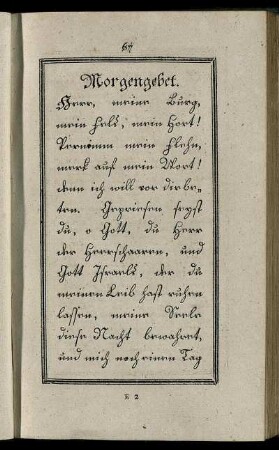 67
Morgengebet.
Herr, meine Burg,
mein Fels, mein Hort!
Vernimm mein Flehn,
merk auf mein Wort!
denn ich will vor dir be-
ten. Gepriesen seyst
du, o Gott, du Herr
der Heerschaaren, und
Gott Israels, der du
meinen Leib hast ruhen
lassen, meine Seele
diese Nacht bewahret,
und mich noch einen Tag
E 2